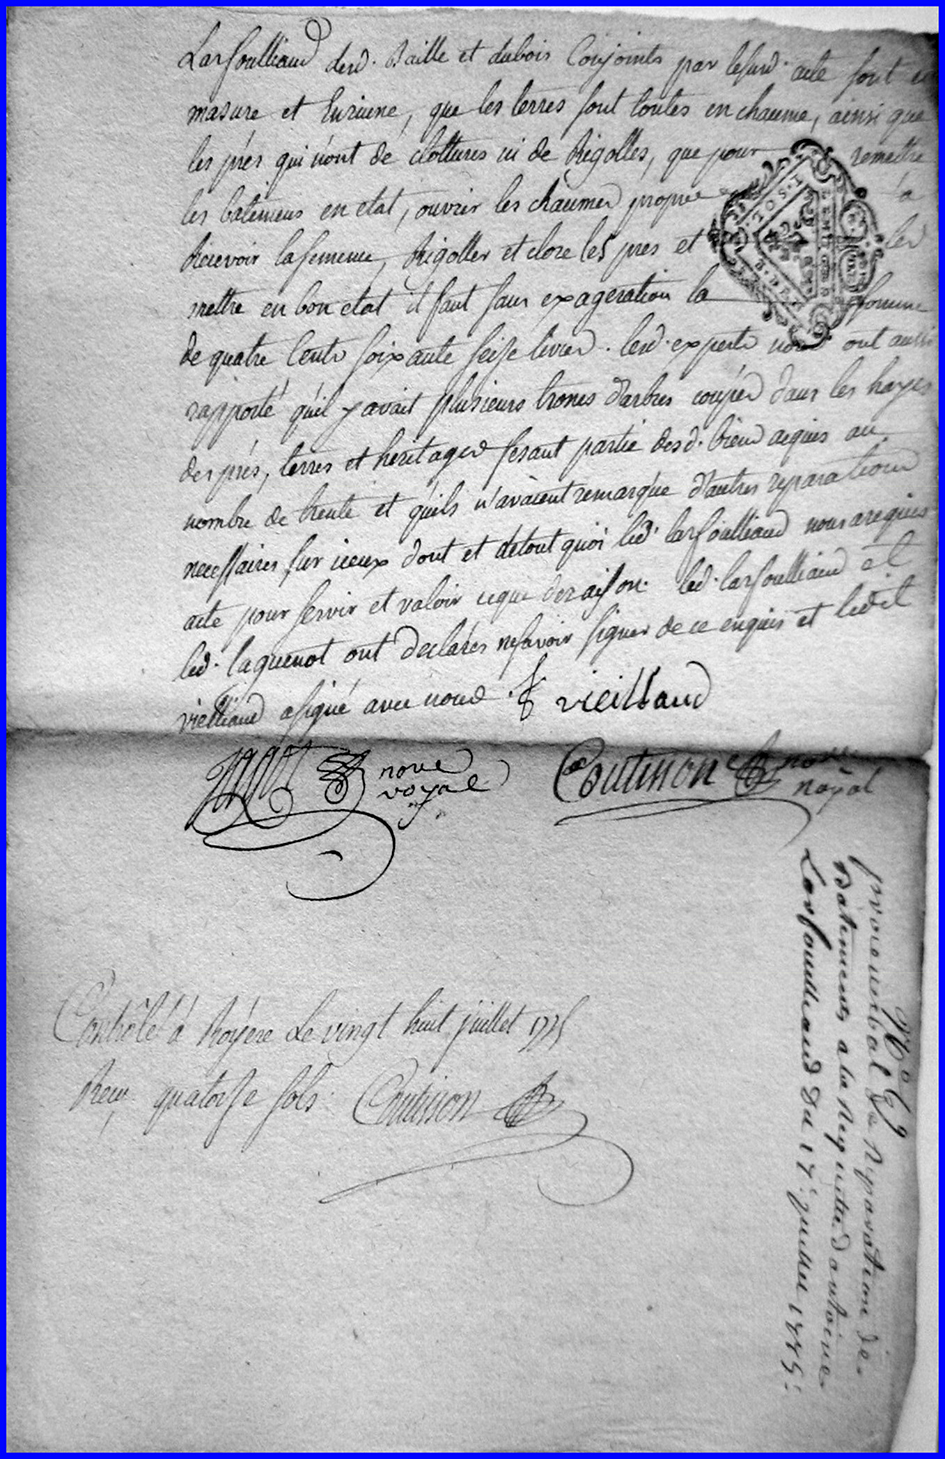 Larfoulliaud desd. Baille et dubois Conjoints par lesusd. acte sont en
masure et Enruine, que les terres sont toutes en chaume, ainsi que
les prés qui n'ont de clottures ni de Rigolles, que pour remettre
les batimens en etat, ouvrir les chaumes propre a
Recevoir la semence, Rigoller et clore les pres et les
mettre en bon etat il faut sans exageration la somme
de quatre Cents soixante seise livres. lesd. experts nous ont aussi
rapporté qu'il y avait plusieurs trones d'arbres coupés dans les hayes
des prés, terres et heritages fesant partie desd. biens acquis au
nombre de trente et qu'ils n'avaient remarqué d'autres reparations
necessaires sur iceux dont et detout quoi led. larfoulliaud nous arequis
acte pour servir et valoir ceque deraison. led. larfoulliaud et
led. laquenot ont declarés nesavoir signer de ce enquis et ledit
vielliaud asigné avec nous. f vieillaud
nore royal
Coutisson nore royal
Contrôlé à Royere Le vingt huit juillet 1775
Recu quatorse sols Coutisson
procais verbal De Reparation de
Batiments a la Requette d'antoine
Larfoulliaud Du 17 juillet 1775